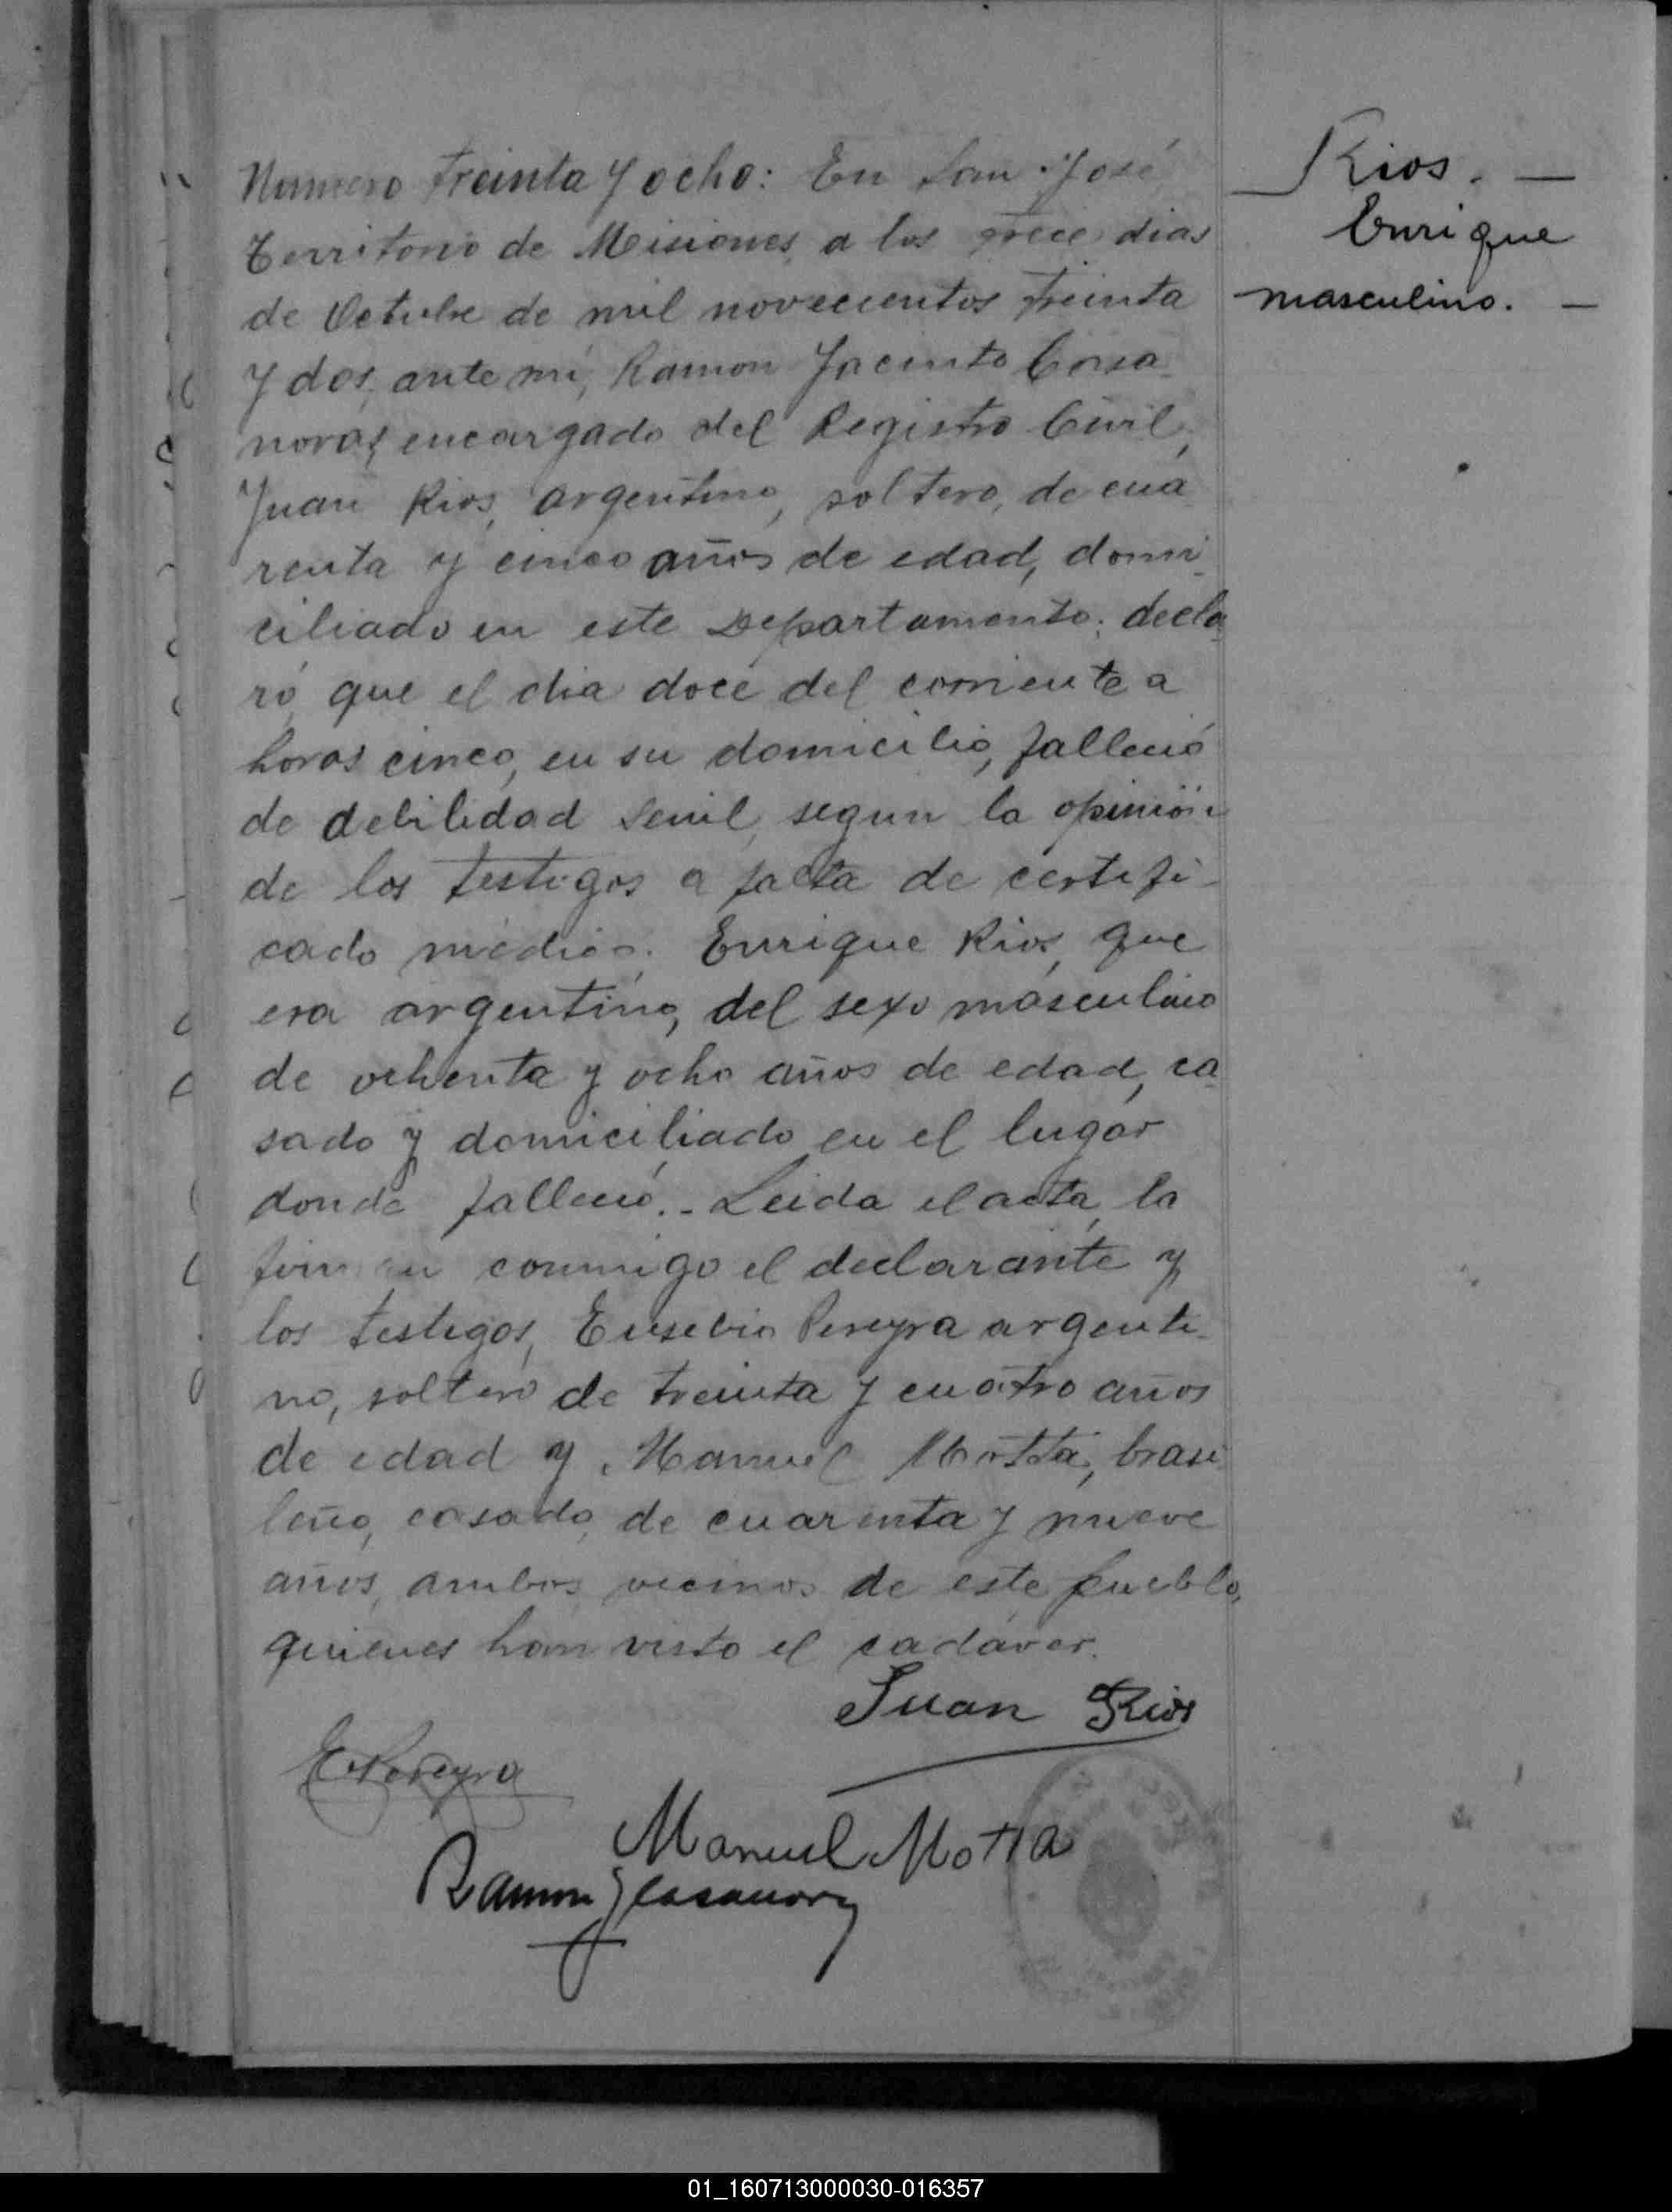 Numero treinta y ocho: En San José
Territorio de Misiones, a los trece dias
de Octubre de mil novecientos treinta
y dos, ante mi, Ramon Jacinto Casa
novas, encargado del Registro Civil,
Juan Rios, argentino, soltero, de cua
renta y cinco años de edad, domi
ciliado en este Departamento; decla
ró que el dia doce del corriente a
horas cinco, en su domicilio, falleció
de debilidad senil, segun la opinión
de los testigos a falta de certifi-
cado médico. Enrique Rios, que
era argentino, del sexo masculino
de ochenta y ocho años de edad, ca
sado y domiciliado en el lugar
donde falleció.- Leida el acta, la
firman conmigo el declarante y
los testigos, Eusebio Pereyra argenti-
no, soltero de treinta y cuatro años
de edad y Manuel Motta, brasi
leño, casado, de cuarenta y nueve
años, ambos vecinos de este pueblo,
quienes han visto el cadáver.
Juan Rios
E Pereyra
Manuel Motta
Ramon J Casanova
Rios. —
Enrique
masculino. —
01_160713000030-016357